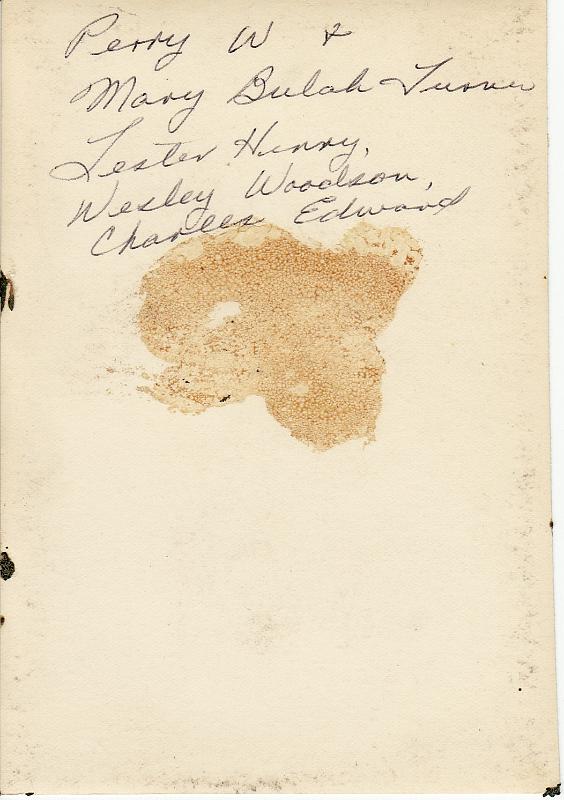 Perry W &
Mary Bulah Turner
Lester Henry,
Wesley Woodson,
Charles Edward